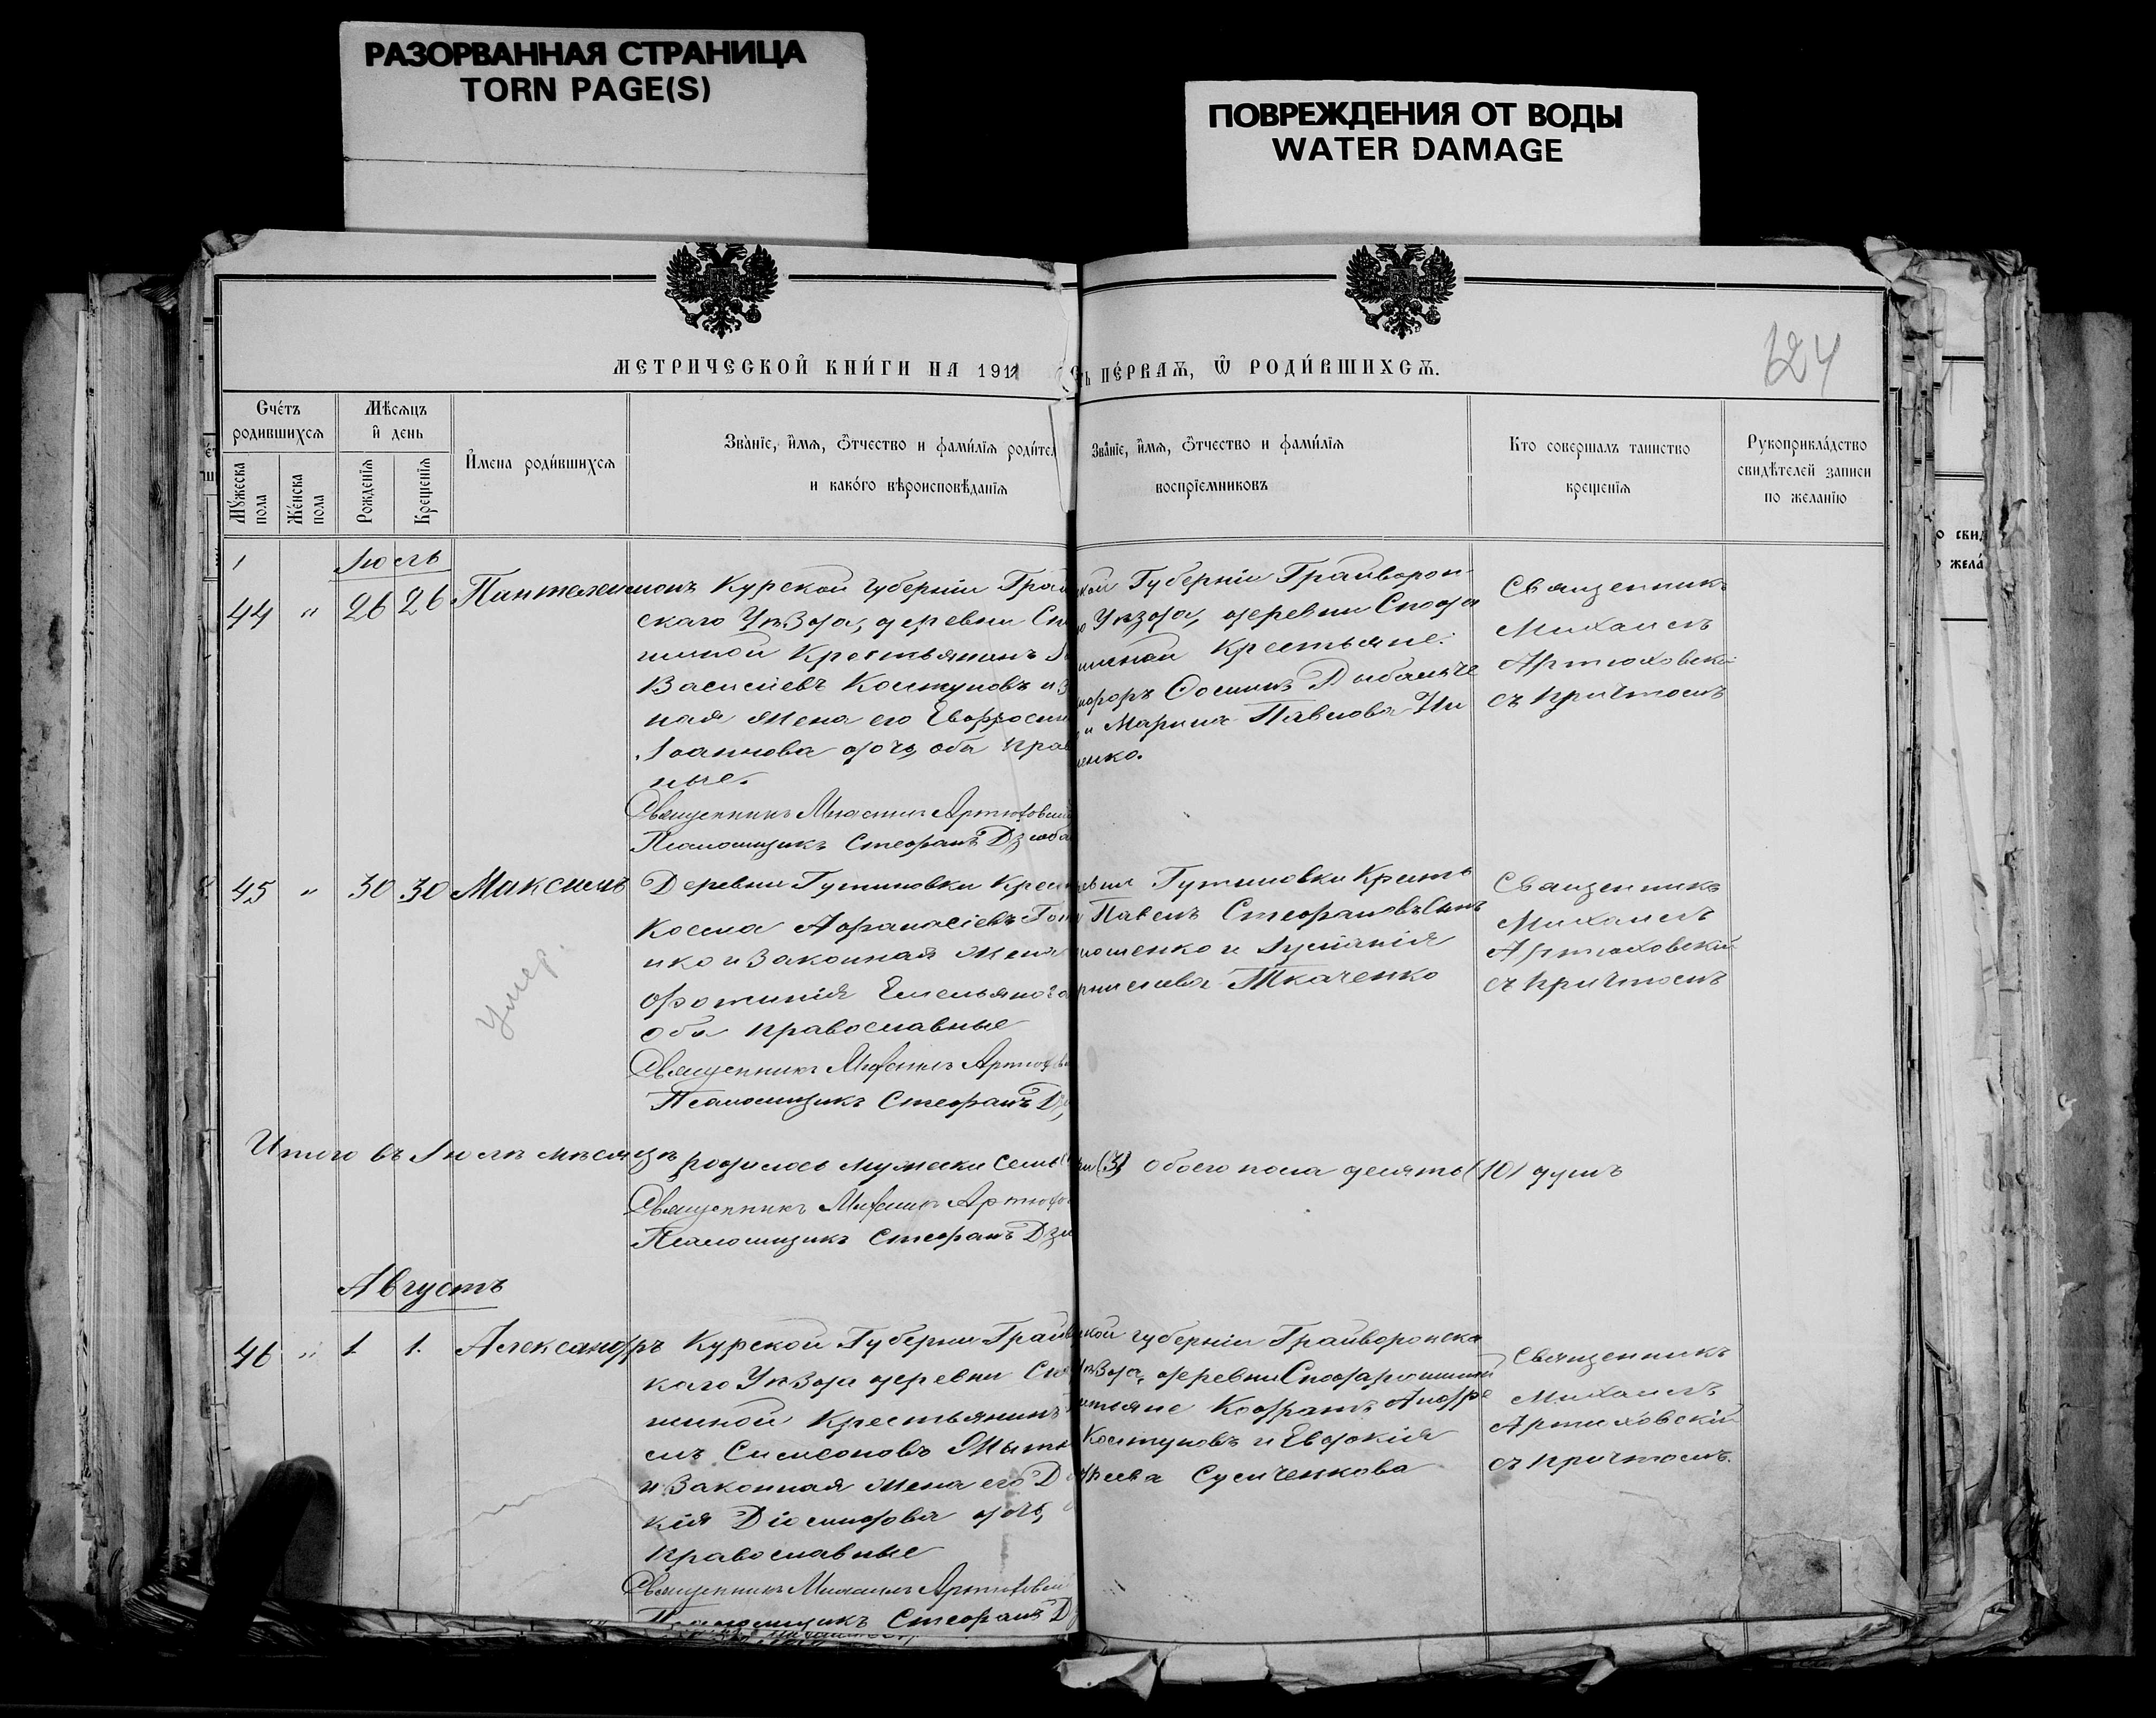 РАЗОРВАННАЯ СТРАНИЦА
TORN PAGE(S)
ПОВРЕЖДЕНИЯ ОТ ВОДЫ
WATER DAMAGE
МЕТРИЧЕСКОЙ КНИ́ГИ НА 1911
ПЕ́РВАѦ, Ѿ РОДИ́ВШИХСѦ.
624
Сче́тъ родившихсѧ
Мѣсѧцъ и день
Мꙋжеска пола
Же́нска пола
Рожденїѧ
Крещенїѧ
Имена роди́вшихсѧ
Зва́нїе, и́мѧ, ѻ҆́тчество и фами́лїѧ роди́тел
и како́го вѣроисповѣ́данїѧ
Зва́нїе, и́мѧ, ѻ҆́тчество и фами́лїѧ
воспрїемниковъ
Кто совершалъ таинство
крещенїѧ
Рукоприкла́дство
свидѣ́телей записи
по желанїю
Іюль
44 " 26 26 Пантелеимонъ
Курской губерніи Грай
скаго Уѣзда, деревни Сп
шиной Крестьянинъ
Василіевъ Колтуновъ и з
ная жена его Евфросин
Іоаннова дочь, оба прав
ные.
Священникъ Михаилъ Артюховскій
Псаломщикъ Стефанъ Дзюба
кой Губерніи Грайворон
Уѣзда, деревни Спода
шиной Крестьяне:
и Марина Павлова
енко.
Священникъ
Михаилъ
Артюховскій
съ причтомъ
45 " 30 30 Максимъ
Умер.
Деревни Гутиновки Крес
Косма Афанасіевъ
нко и законная жена
Фотинія Емельянова
оба православные
Священникъ Михаилъ Артюхов
Псаломщикъ Стефанъ Дз
Гутиновки Кресть
Павелъ Стефановъ
Ткаченко
Священникъ
Михаилъ
Артюховскій
съ причтомъ
Итого въ Іюлѣ мѣсяцѣ родилось мужески семь
(3) обоего пола десять (10) душъ
Священникъ Михаилъ Артюхо
Псаломщикъ Стефанъ Дзю
Августъ
46 " 1. 1. Александръ
Курской Губерни Грайв
каго Уѣзда деревни Сп
шиной Крестьянинъ
Симеоновъ
и законная жена его
кія Діомидова дочь,
православные
Священникъ Михаилъ Артюховскі
Псаломщикъ Стефанъ Д
кой губерніи Грайворонска
Уѣзда, деревни Сподарюшиной
Кодратъ Андре
Колтуновъ и Евдокія
Сумченкова
Священникъ
Михаилъ
Артюховскій
съ причтомъ.